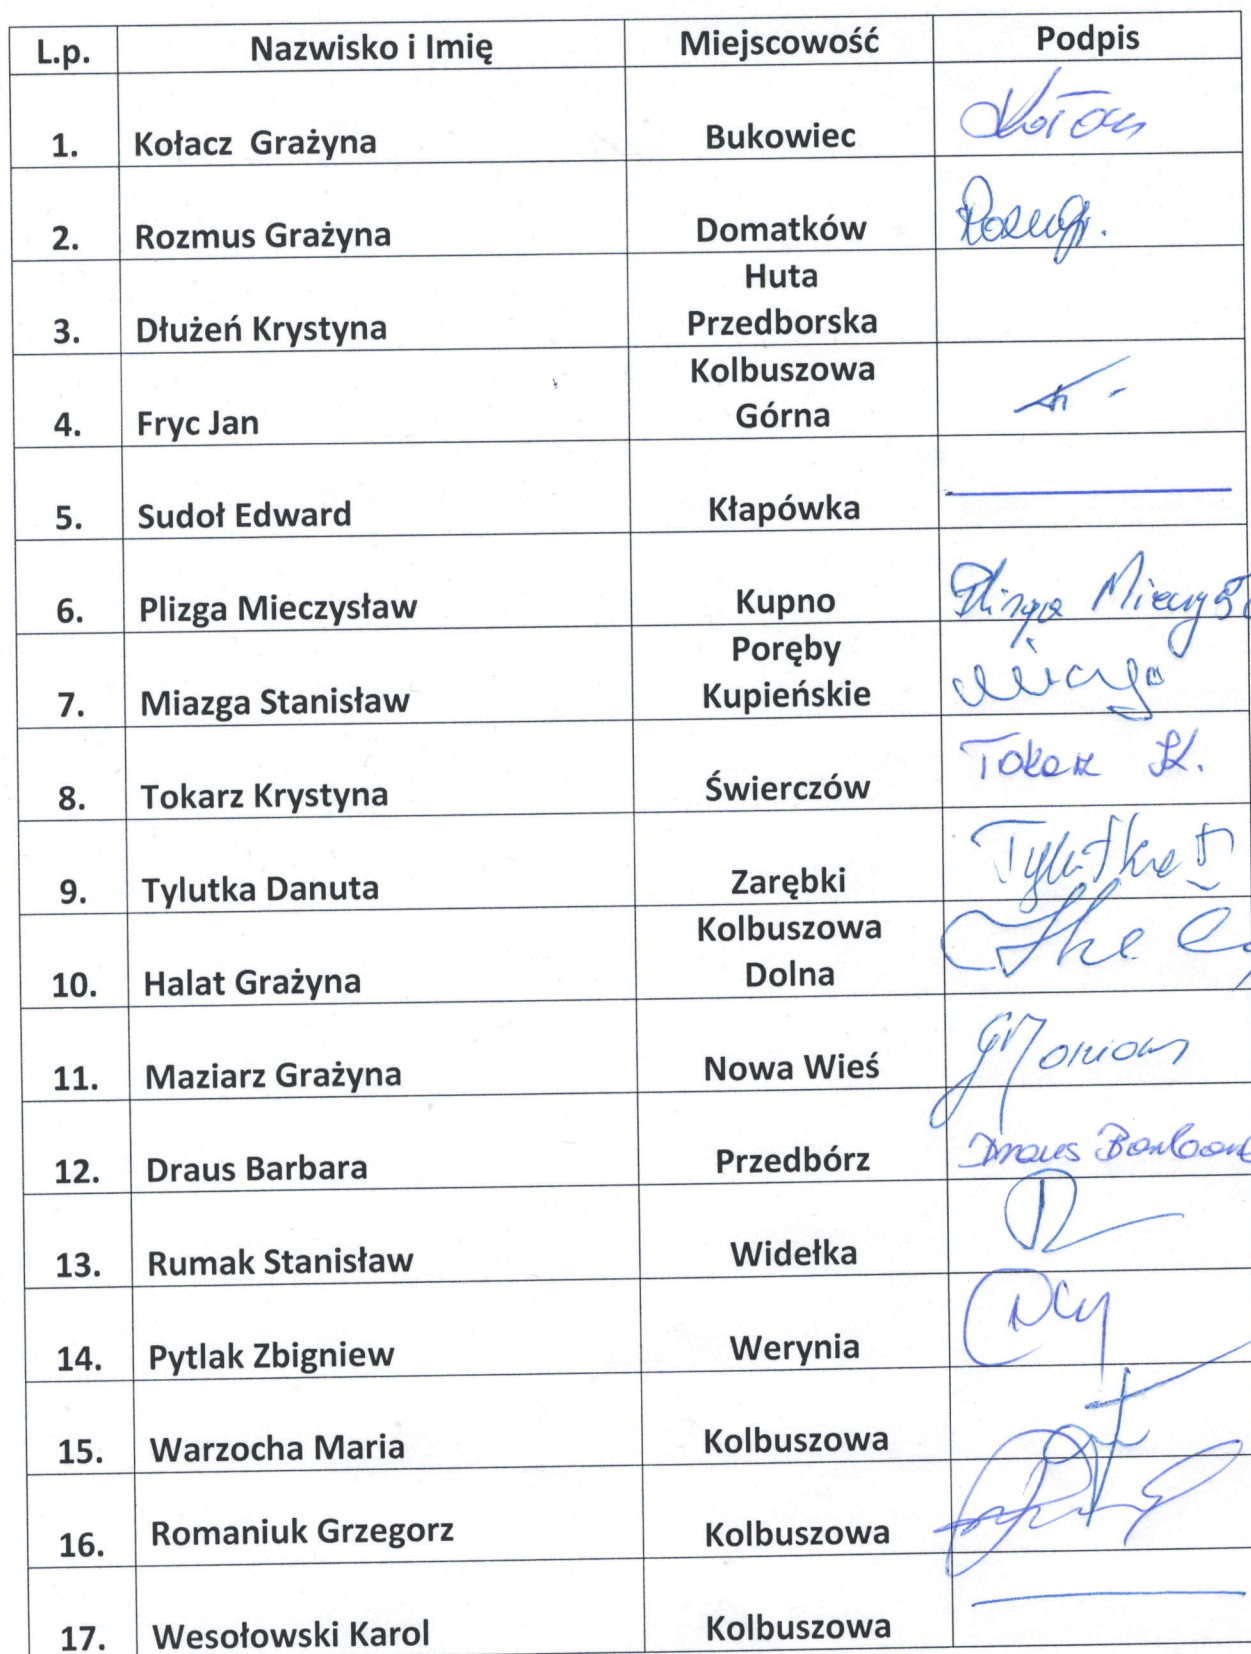 L.p. Nazwisko i Imię Miejscowość Podpis
1. Kołacz Grażyna Bukowiec
2. Rozmus Grażyna Domatków
Huta
3. Dłużeń Krystyna Przedborska
Kolbuszowa
4. Fryc Jan Górna
5. Sudoł Edward Kłapówka
6. Plizga Mieczysław Kupno Plizga
Poręby
7. Miazga Stanisław Kupieńskie Miazga
8. Tokarz Krystyna Świerczów Tokarz K.
9. Tylutka Danuta Zarębki Tylutka D
Kolbuszowa
10. Halat Grażyna Dolna
11. Maziarz Grażyna Nowa Wieś G Maziarz
12. Draus Barbara Przedbórz Draus Barbara
13. Rumak Stanisław Widełka
14. Pytlak Zbigniew Werynia
15. Warzocha Maria Kolbuszowa
16. Romaniuk Grzegorz Kolbuszowa
17. Wesołowski Karol Kolbuszowa